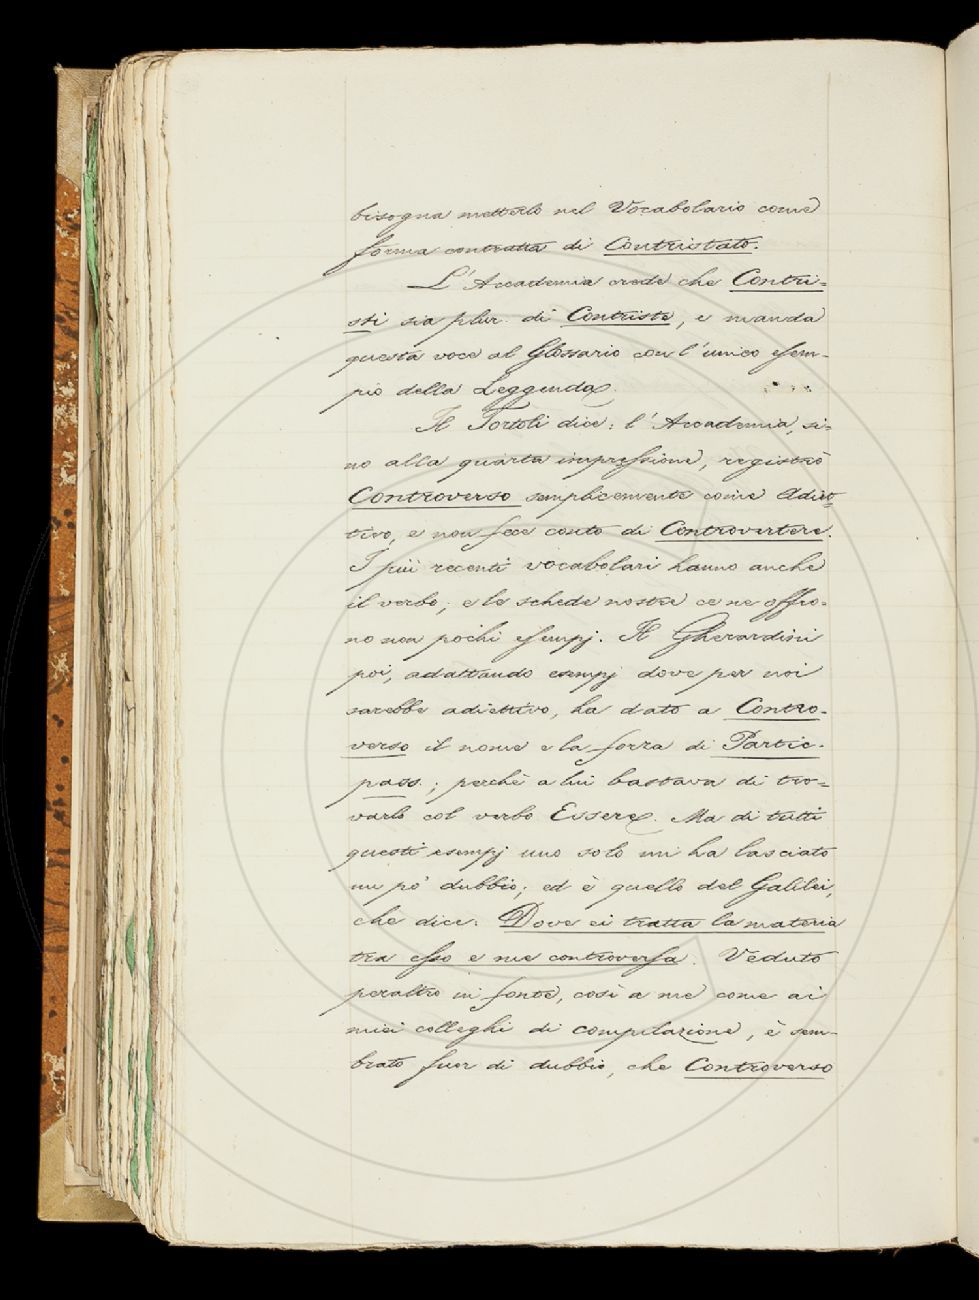 bisogna metterlo nel Vocabolario come
forma contratta di Contristato.
L'Accademia crede che Contri-
sti sia plur. di Contristo, e manda
questa voce al Glossario con l'unico esem-
pio della Leggenda.
Il Tortoli dice: l'Accademia, si-
no alla quarta impressione, registrò
Controverso semplicemente come Adiet-
tivo, e non fece conto di Controvertere.
I più recenti vocabolari hanno anche
il verbo; e le schede nostre ce ne offro-
no non pochi esempj. Il Gherardini
poi, adattando esempj dove per noi
sarebbe adiettivo, ha dato a Contro-
verso il nome e la forza di Partic.
pass.; perchè a lui bastava di tro-
varlo col verbo Essere. Ma di tutti
questi esempj uno solo mi ha lasciato
un pò dubbio; ed è quello del Galilei,
che dice: Dove si tratta la materia
tra esso e me controversa. Veduto
peraltro in fonte, così a me come ai
miei colleghi di compilazione, è sem-
brato fuor di dubbio, che Controverso